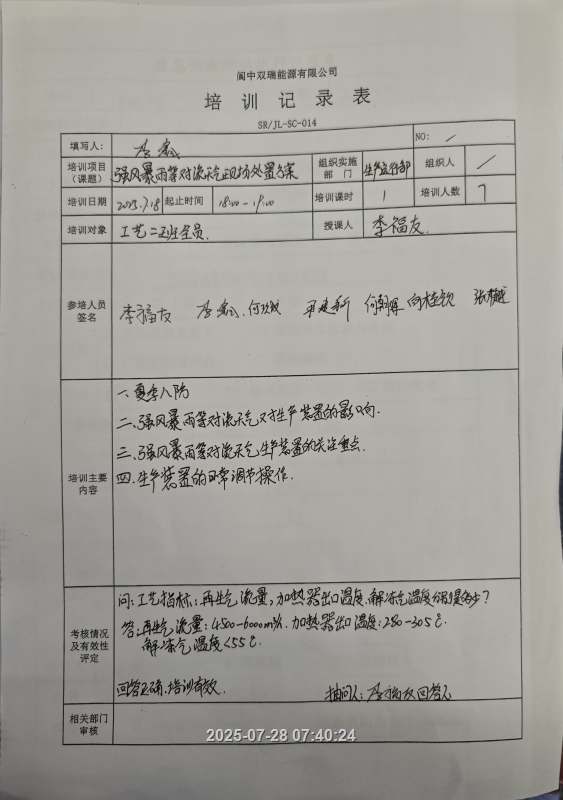 阆中双瑞能源有限公司
培训记录表
SR/JL-SC-014
填写人: NO: /
培训项目(课题) 强风暴雨等对流天气现场处置方案 组织实施部门 生产运行部 组织人 /
培训日期 2025.7.18 起止时间 18:00-19:00 培训课时 1 培训人数 7
培训对象 工艺二班全员. 授课人 李福友
参培人员签名 李福友 向桂钦
培训主要内容
一.夏季八防
二.强风暴雨等对流天气对生产装置的影响.
三.强风暴雨等对流天气生产装置的关注重点.
四.生产装置的日常调节操作.
考核情况及有效性评定
问:工艺指标:再生气流量,加热器出口温度,解冻气温度分别是多少?
答:再生气流量:4500-6000m³/h.加热器出口温度:280-305℃.
解冻气温度<55℃.
回答正确,培训有效. 抽问人:李福友 回答人
相关部门审核
2025-07-28 07:40:24